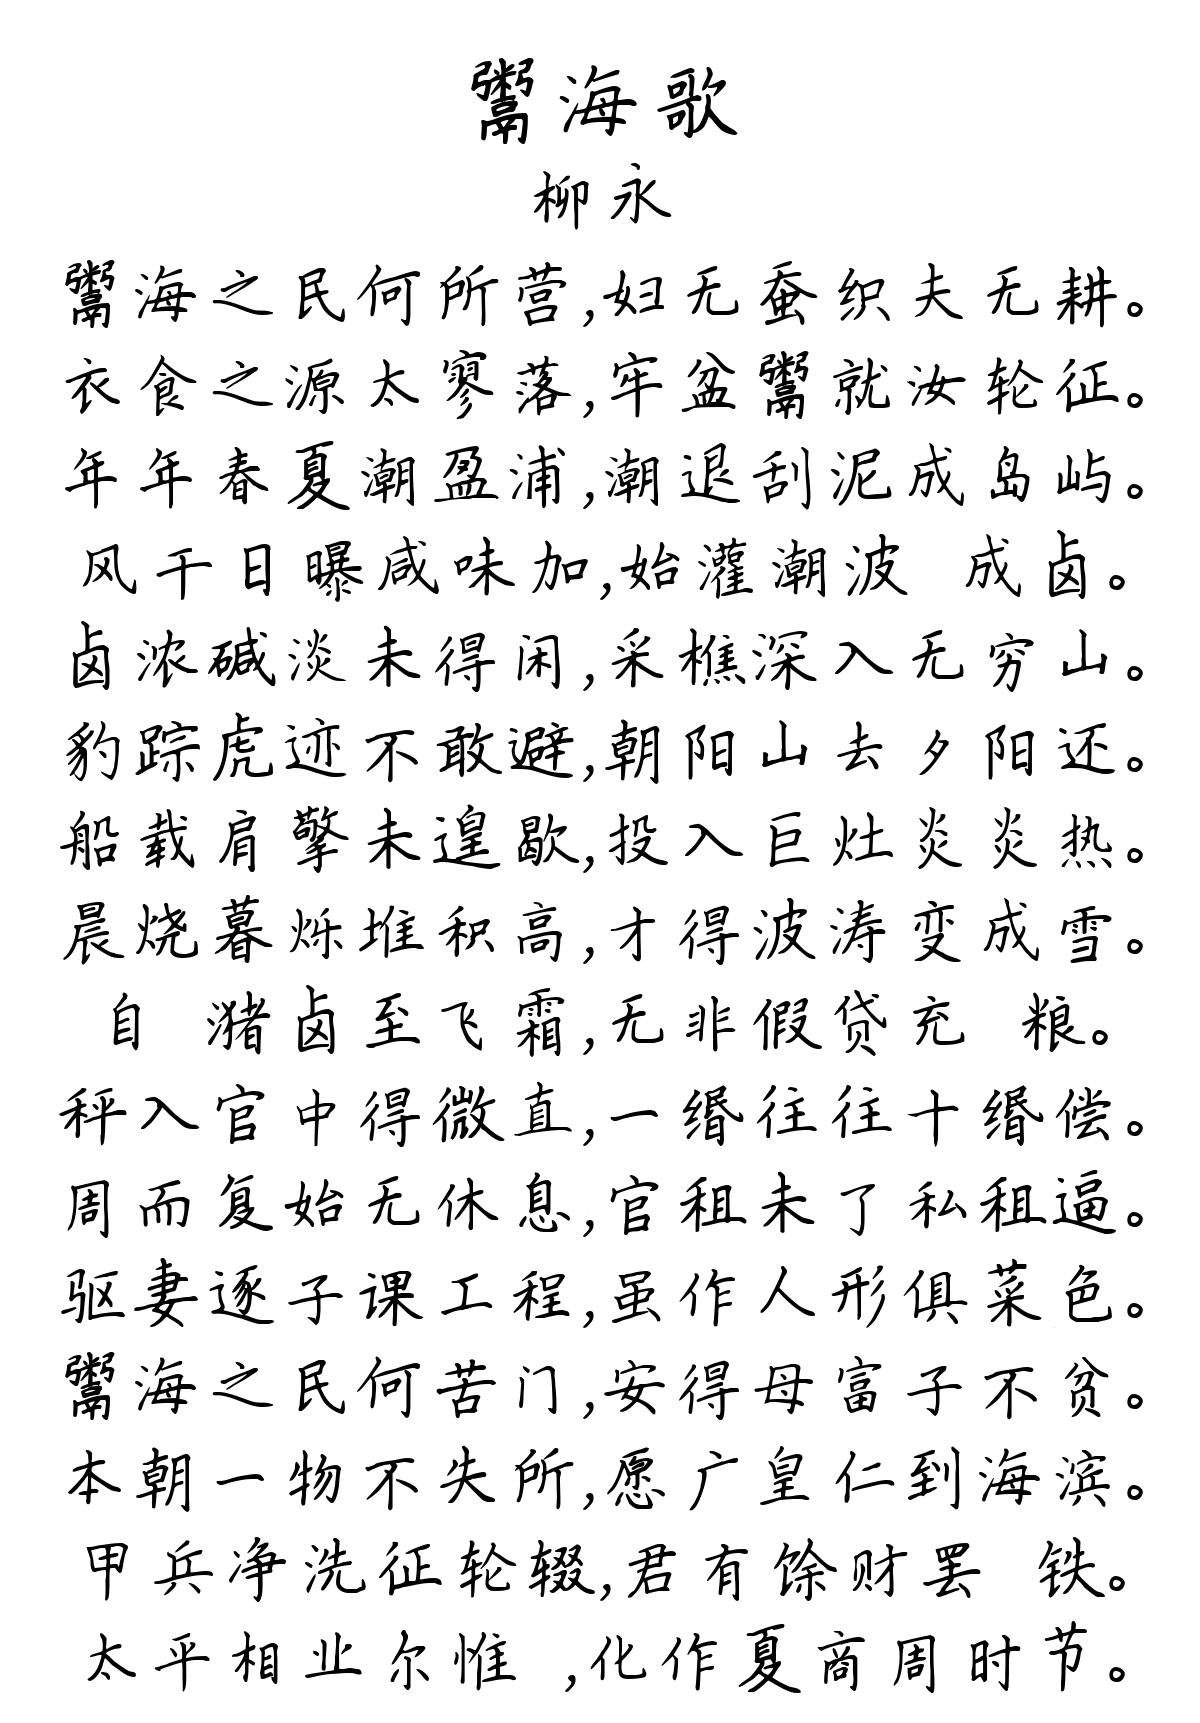 鬻海歌
柳永
鬻海之民何所营,妇无蚕织夫无耕。
衣食之源太寥落,牢盆鬻就汝轮征。
年年春夏潮盈浦,潮退刮泥成岛屿。
风干日曝咸味加,始灌潮波 成卤。
卤浓碱淡未得闲,采樵深入无穷山。
豹踪虎迹不敢避,朝阳山去夕阳还。
船载肩擎未遑歇,投入巨灶炎炎热。
晨烧暮烁堆积高,才得波涛变成雪。
自 潴卤至飞霜,无非假贷充 粮。
秤入官中得微直,一缗往往十缗偿。
周而复始无休息,官租未了私租逼。
驱妻逐子课工程,虽作人形俱菜色。
鬻海之民何苦门,安得母富子不贫。
本朝一物不失所,愿广皇仁到海滨。
甲兵净洗征轮辍,君有馀财罢 铁。
太平相业尔惟 ,化作夏商周时节。